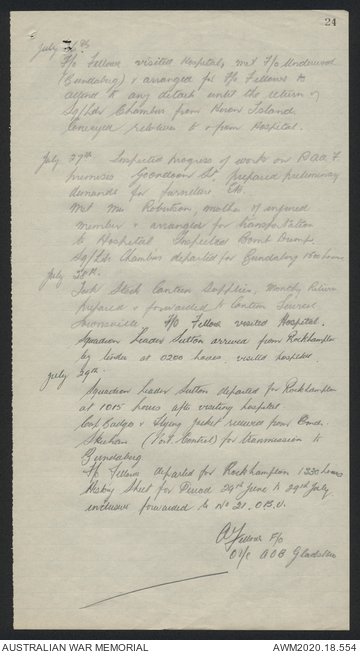 24
July
F/O Fellows visited Hospital, met F/O Underwood
(Bundaberg) & arranged for F/O Fellows to
attend to any details until the return of
Sq/Ldr Chambers from Heron Island
Conveyed relatives to & from Hospital.
July 27th Inspected progress of work on RAAF
premises Goondoon St, prepared preliminary
demands for furniture etc.
Met Mrs Robertson, mother of injured
member & arranged for transportation
to Hospital Inspected Bomb Dumps,
Sq/Ldr Chambers departed for Bundaberg 1500 hours
July 28th.
Took Stock Canteen Supplies, Monthly Return
prepared & forwarded to Canteen Services
Townsville. F/O Fellows visited Hospital.
Squadron Leader Sutton arrived from Rockhampton
by at 0200 hours, visited hospital.
July 29th.
Squadron Leader Sutton departed for Rockhampton
at 1015 hours after visiting hospital
Cap Badge & Flying Jacket received from
(Port Control) for transmission to
Bundaberg
F/O Fellows departed for Rockhampton 1230 hours
Sheet for Period 24th June to 29th July
inclusive forwarded to No 21. O.B.U.
A Fellows F/O
O I/C AOB Gladstone
AUSTRALIAN WAR MEMORIAL
AWM2020.18.554